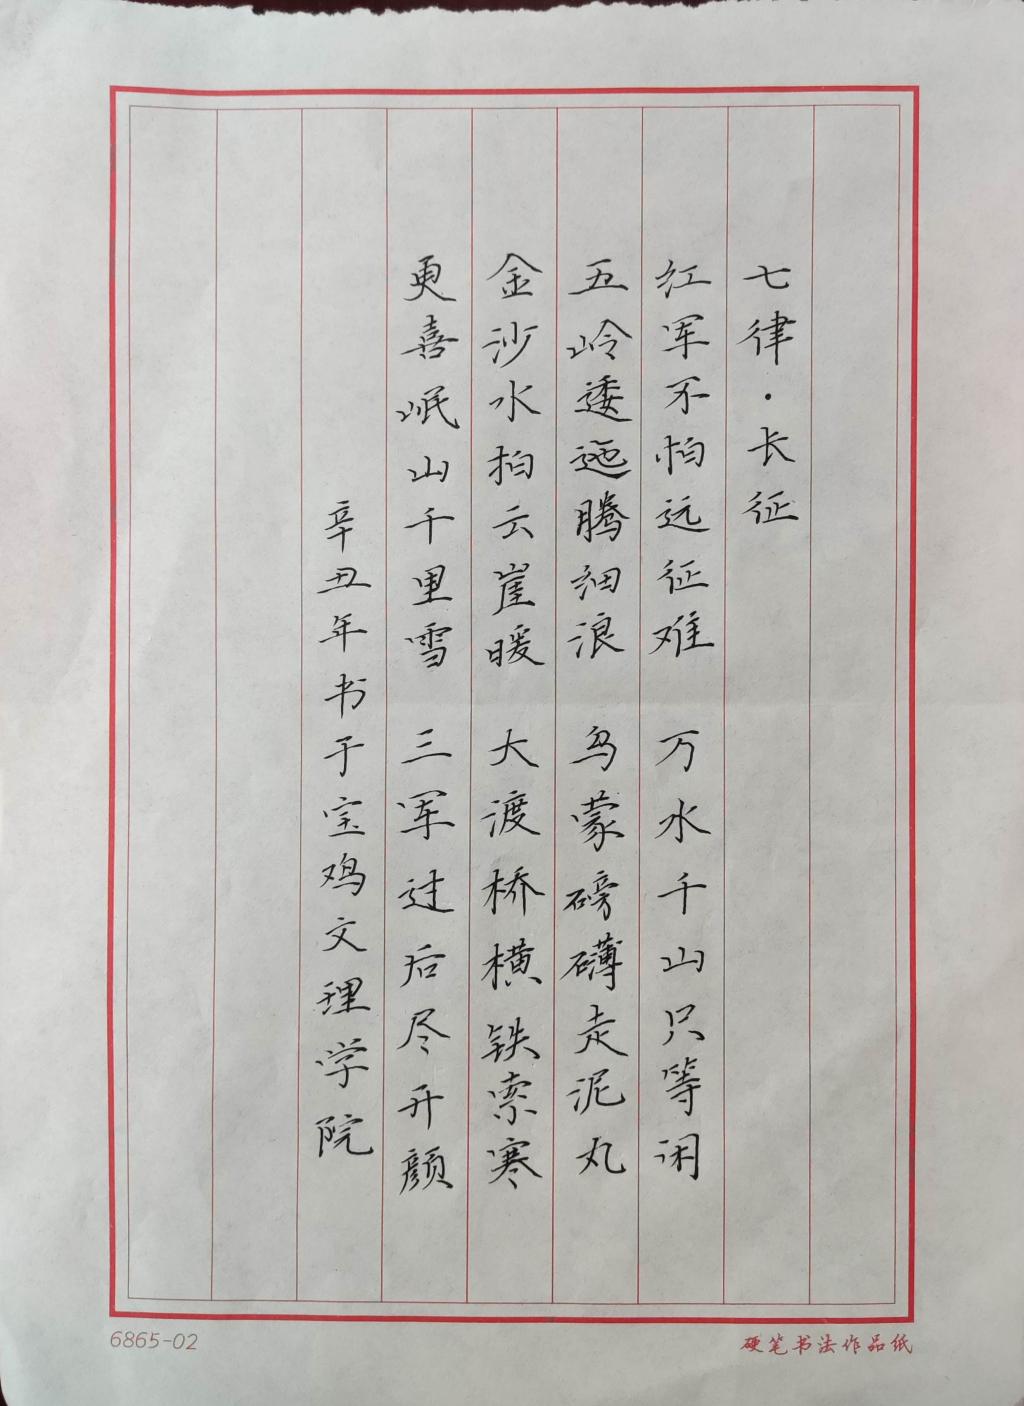 七律·长征
红军不怕远征难 万水千山只等闲
五岭逶迤腾细浪 乌蒙磅礴走泥丸
金沙水拍云崖暖 大渡桥横铁索寒
更喜岷山千里雪 三军过后尽开颜
辛丑年书于宝鸡文理学院
6865-02
硬笔书法作品纸